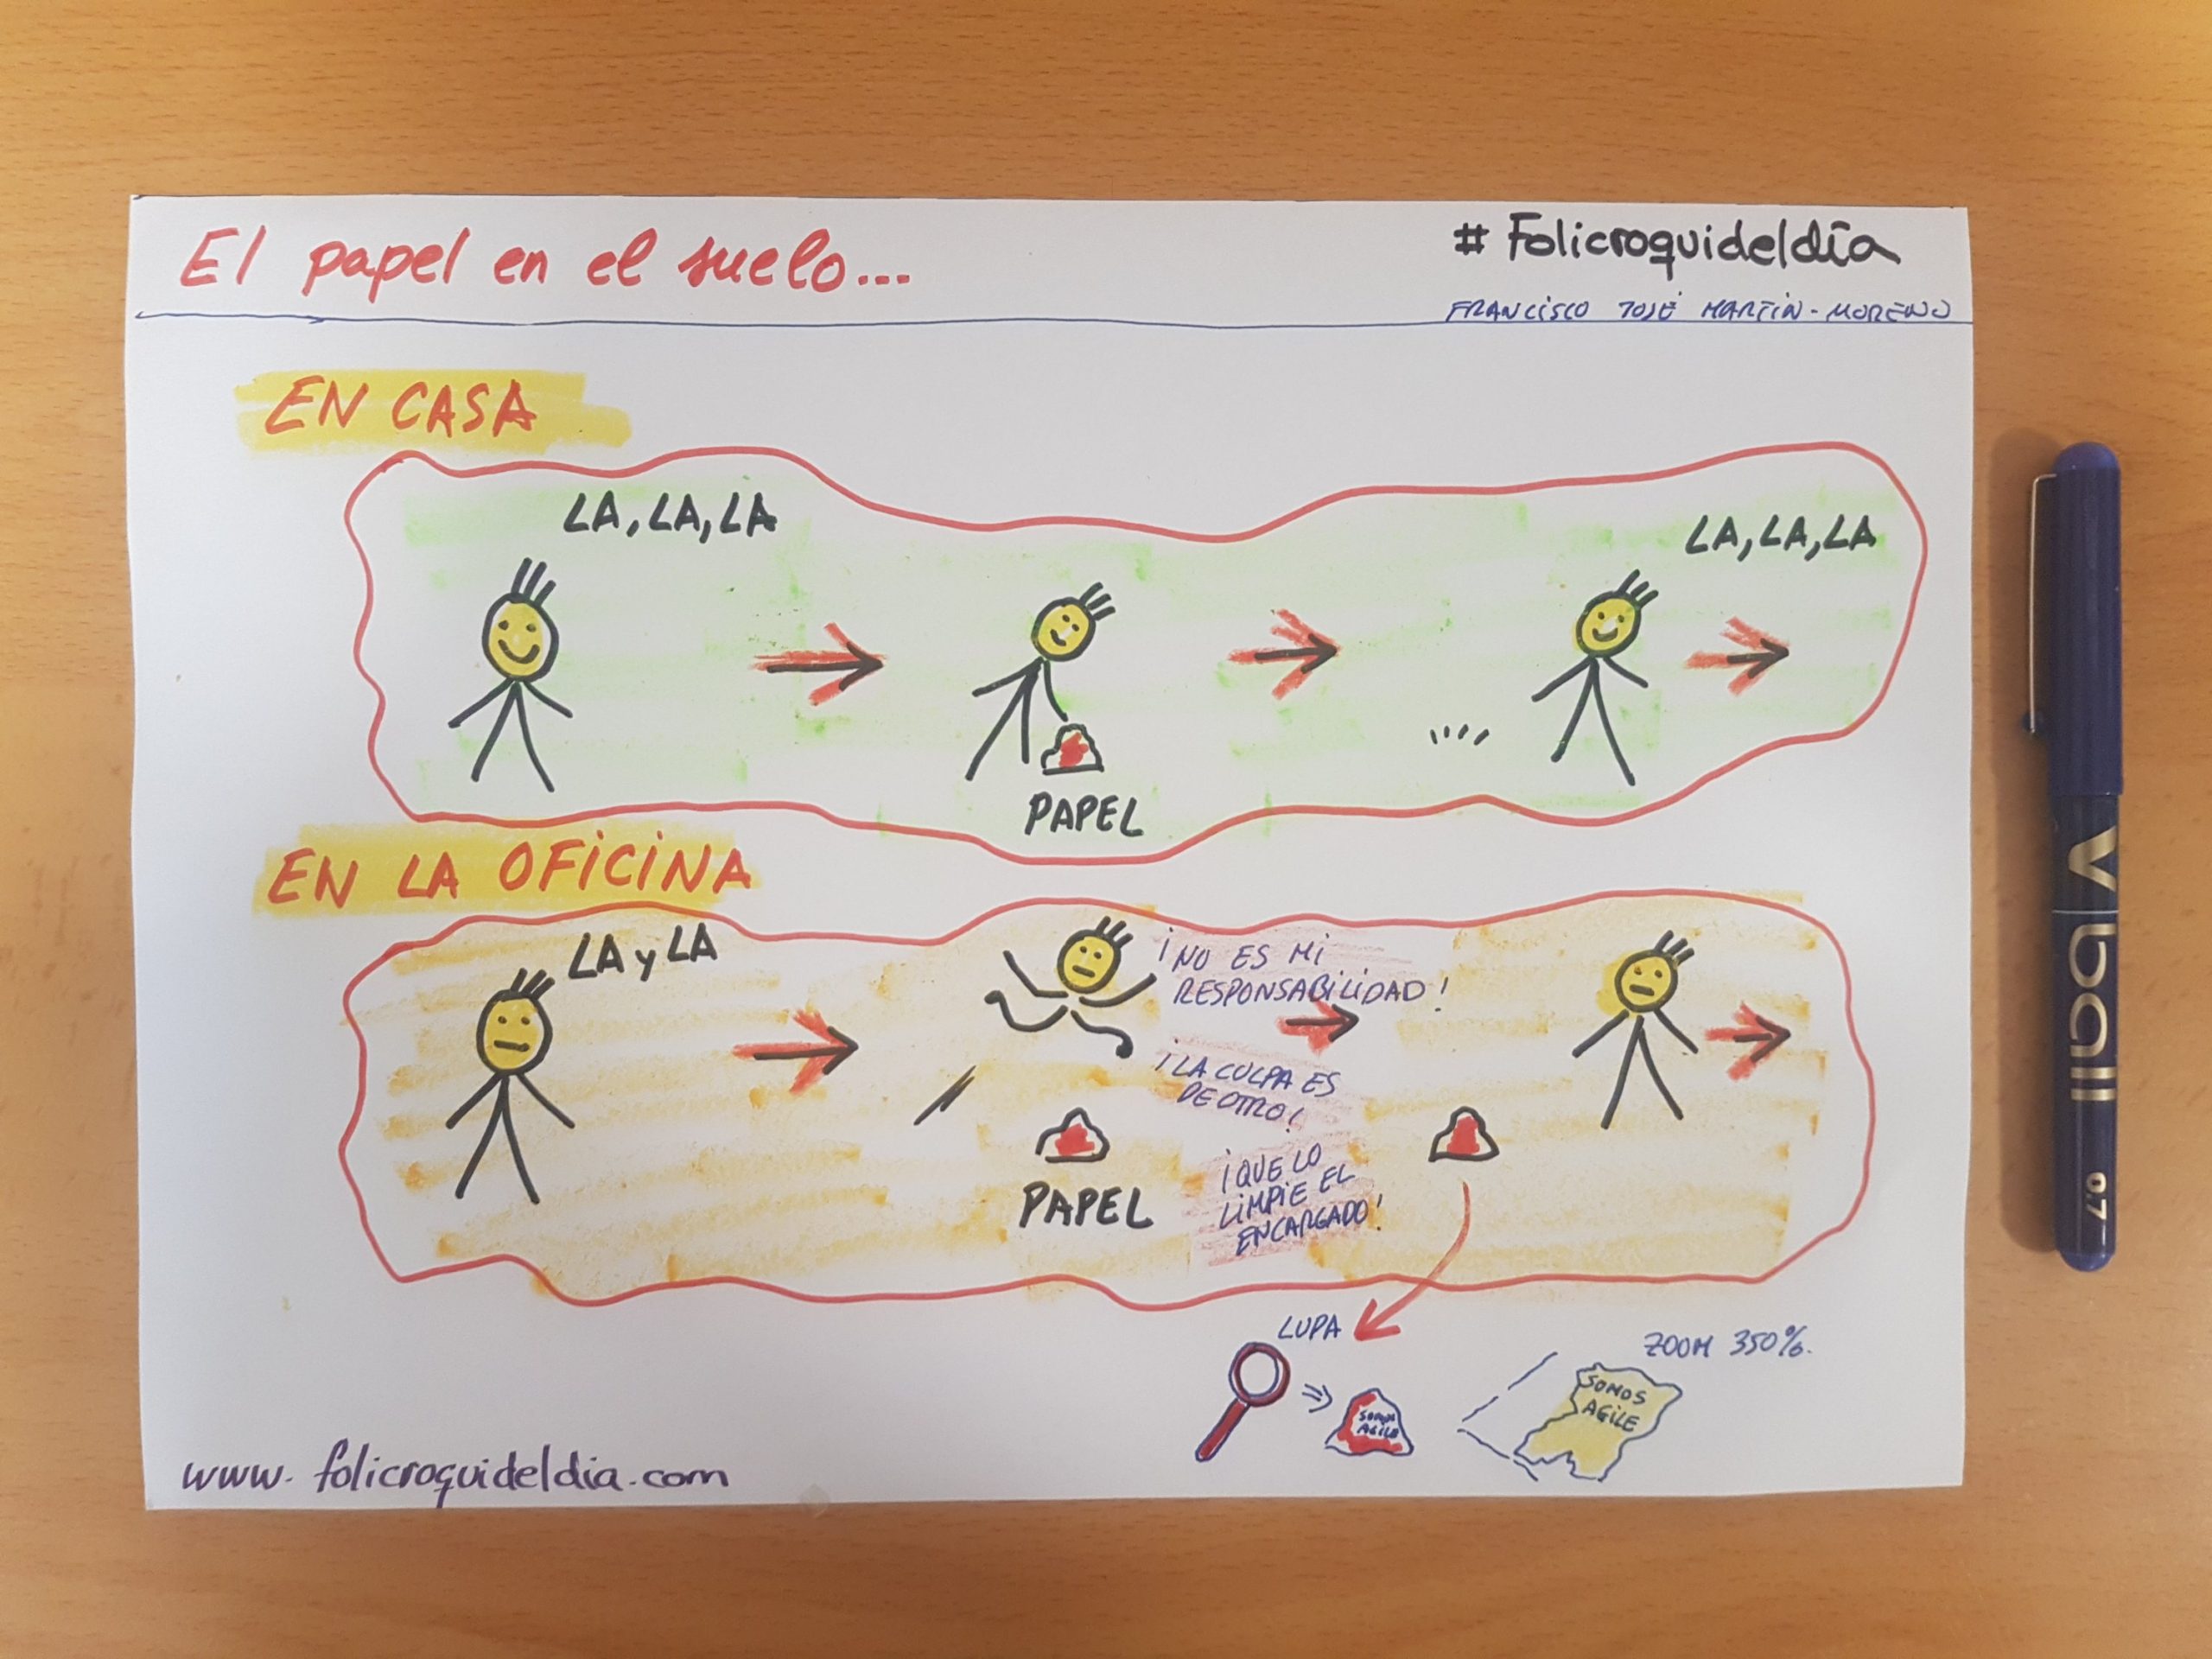 El papel en el suelo...
# Folicroquideldía
FRANCISCO JOSÉ MARTÍN-MORENO
EN CASA
LA, LA, LA
LA, LA, LA
PAPEL
EN LA OFICINA
LA y LA
¡NO ES MI
RESPONSABILIDAD!
¡LA CULPA ES
DE OTRO!
¡QUE LO
LIMPIE EL
ENCARGADO!
PAPEL
LUPA
ZOOM 350%.
SOMOS
AGILE
SOMOS
AGILE
www.folicroquideldia.com
V ball 0.7